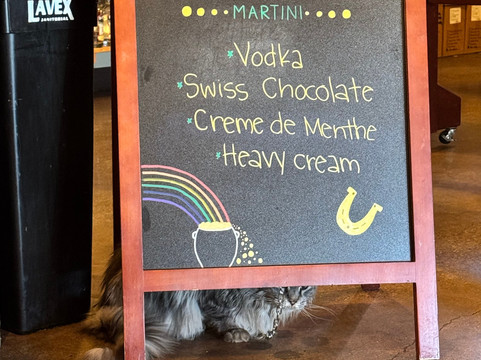 LAVEX
JANITORIAL
MARTINI
Vodka
Swiss Chocolate
Creme de Menthe
Heavy cream